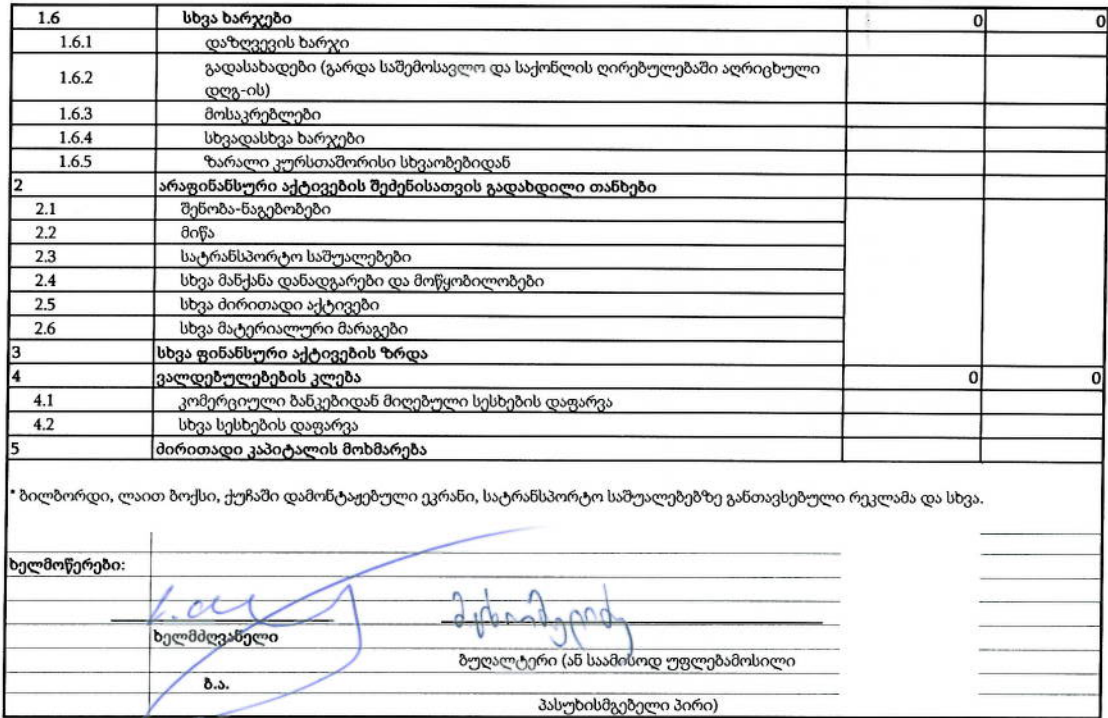 1.6 სხვა ხარჯები 0 0
1.6.1 დაზღვევის ხარჯი
1.6.2 გადასახადები (გარდა საშემოსავლო და საქონლის ღირებულებაში აღრიცხული
დღგ-ის)
1.6.3 მოსაკრებლები
1.6.4 სხვადასხვა ხარჯები
1.6.5 ზარალი კურსთაშორისი სხვაობებიდან
2 არაფინანსური აქტივების შეძენისათვის გადახდილი თანხები
2.1 შენობა-ნაგებობები
2.2 მიწა
2.3 სატრანსპორტო საშუალებები
2.4 სხვა მანქანა დანადგარები და მოწყობილობები
2.5 სხვა ძირითადი აქტივები
2.6 სხვა მატერიალური მარაგები
3 სხვა ფინანსური აქტივების ზრდა
4 ვალდებულებების კლება 0 0
4.1 კომერციული ბანკებიდან მიღებული სესხების დაფარვა
4.2 სხვა სესხების დაფარვა
5 ძირითადი კაპიტალის მოხმარება
* ბილბორდი, ლაით ბოქსი, ქუჩაში დამონტაჟებული ეკრანი, სატრანსპორტო საშუალებებზე განთავსებული რეკლამა და სხვა.
ხელმოწერები:
ხელმძღვანელი
ბუღალტერი (ან საამისოდ უფლებამოსილი
ბ.ა.
პასუხისმგებელი პირი)